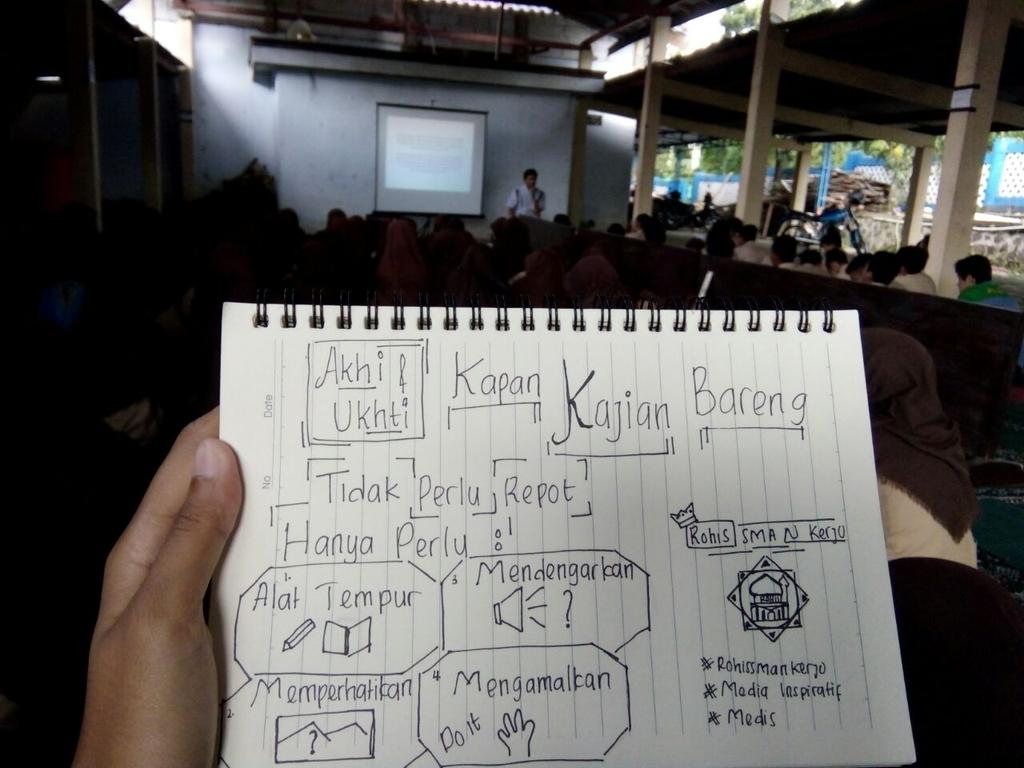 Date
No
Akhi &
Ukhti
Kapan Kajian Bareng
Tidak Perlu Repot
Hanya Perlu :!
1. Alat Tempur
2. Memperhatikan
?
3. Mendengarkan
?
4. Mengamalkan
Do it
Rohis SMA N Kerjo
ROHIS
#Rohissmankerjo
#Media Inspiratif
#Medis